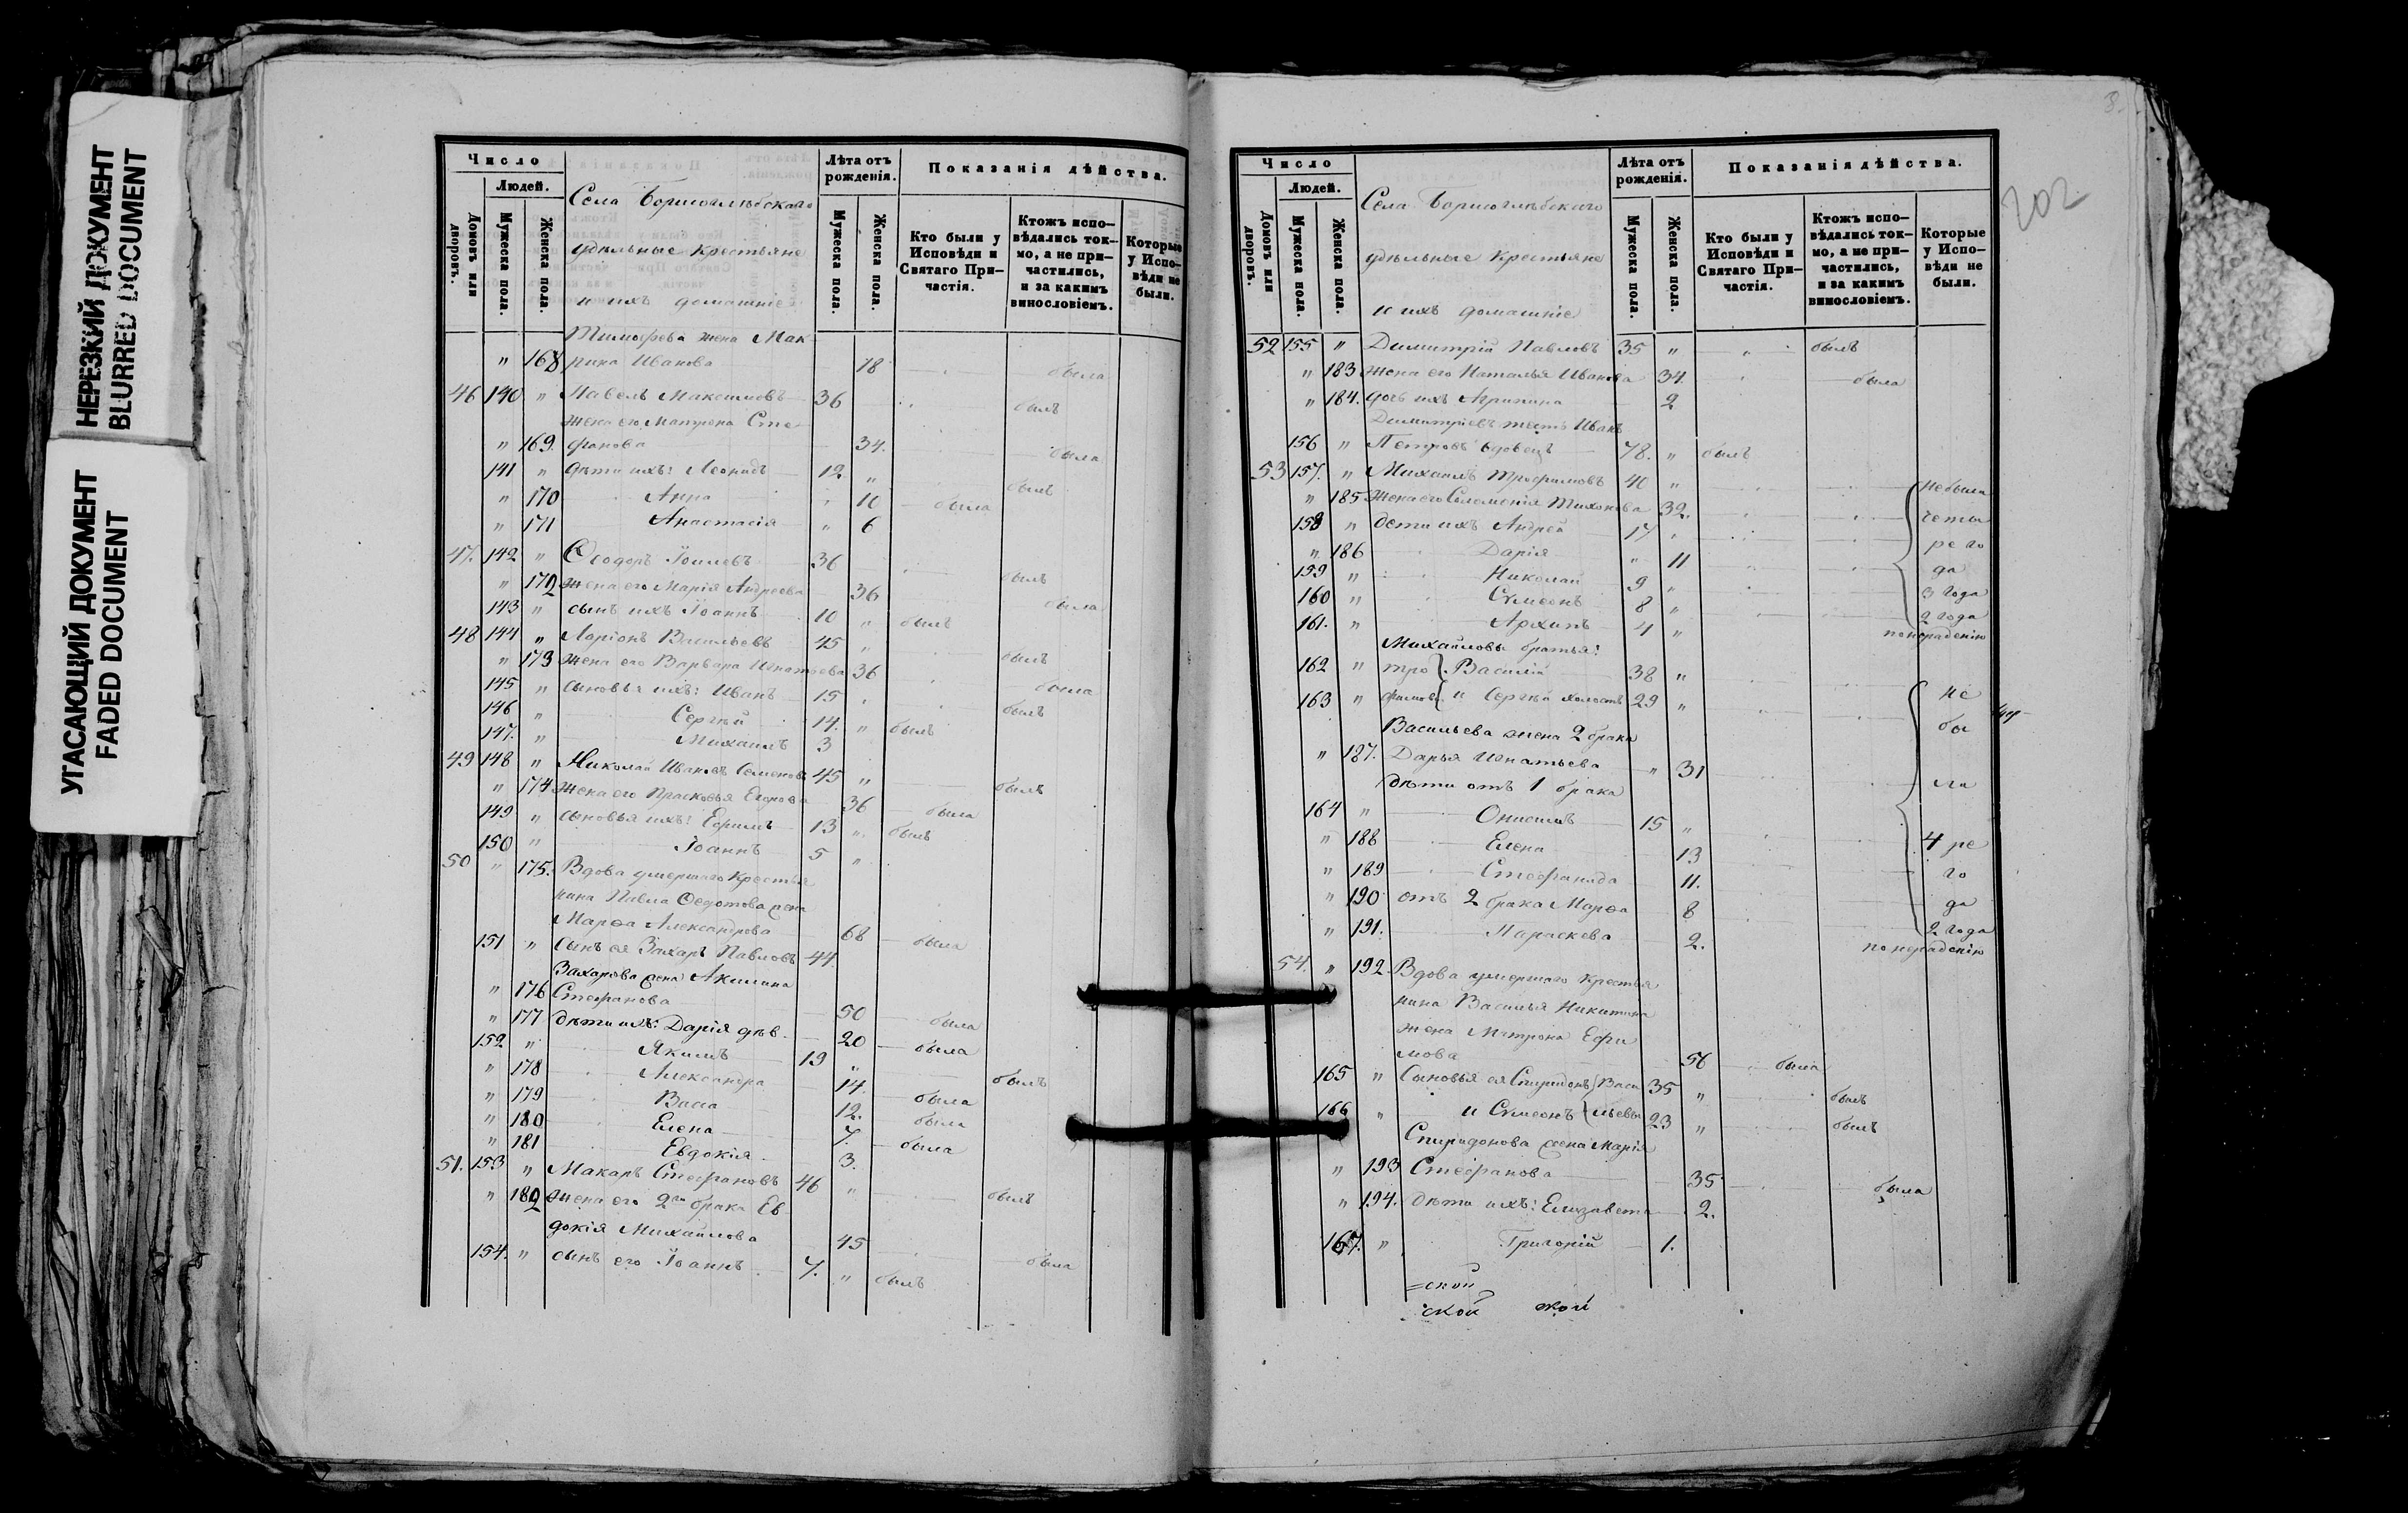 НЕРЕЗКИЙ ДОКУМЕНТ
BLURRED DOCUMENT
УГАСАЮЩИЙ ДОКУМЕНТ
FADED DOCUMENT
Число
Людей.
Домовъ или дворовъ.
Мужеска пола.
Женска пола.
Села Борисоглѣбскаго
удѣльные Крестьяне
и ихъ домашніе
Лѣта отъ рожденія.
Мужеска пола.
Женска пола.
Показанія дѣйства.
Кто были у Исповѣди и Святаго Причастія.
Ктожъ исповѣдались токмо, а не причастились, и за какимъ винословіемъ.
Которые у Исповѣди не были.
Тимофѣева жена Мак
" 168 рина Иванова 18 была
46 140 " Павелъ Максимовъ 36 былъ
жена его Матрена Сте
" 169. фанова 34. была
141 " дѣти ихъ: Леонидъ 12 " былъ
" 170 Анна " 10 была
" 171 Анастасія " 6
47. 142 " Ѳеодоръ 36 былъ
" 172 жена его Марія Андреева 36 была
143 " сынъ ихъ Іоаннъ 10 " былъ
48 144 " Ларіонъ Васильевъ 45 " былъ
" 173 жена его Варвара Игнатьева 36 была
145 " сыновья ихъ: Иванъ 15 былъ
146 " Сергѣй 14. " былъ
147. " Михаилъ 3
49 148 " Николай Ивановъ Семеновъ 45 " былъ
" 174 жена его Прасковья 36 была
149 " сыновья ихъ: Ефимъ 13 " былъ
150 " Іоаннъ 5 "
50 " 175. Вдова умершаго Крестья
нина Павла Ѳедотова жена
Марѳа Александрова 68 была
151 " сынъ ея Захаръ Павловъ 44
Захарова жена Акилина
" 176 Стефанова 50 была
" 177 дѣти ихъ: Дарія дѣв. 20 была
152 " Якимъ 19 " былъ
" 178 Александра 14. была
" 179 Васса 12. была
" 180 Елена 7. была
" 181 Евдокія 3.
51. 153 " Макаръ Стефановъ 46 " былъ
" 182 жена его 2го брака Ев
докія Михайлова 45 была
154. " сынъ его Іоаннъ 7. " былъ
202
Число
Людей.
Домовъ или дворовъ.
Мужеска пола.
Женска пола.
Села Борисоглѣбскаго
удѣльные Крестьяне
и ихъ домашніе
Лѣта отъ рожденія.
Мужеска пола.
Женска пола.
Показанія дѣйства.
Кто были у Исповѣди и Святаго Причастія.
Ктожъ исповѣдались токмо, а не причастились, и за какимъ винословіемъ.
Которые у Исповѣди не были.
52 155 " Димитрій Павловъ 35 " былъ
" 183 жена его Наталья Иванова 34. была
" 184. дочь ихъ Агрипина 2
Димитріевъ тесть Иванъ
156 " Петровъ вдовецъ 78. " былъ
53 157. " Михаилъ Трофимовъ 40 " небыли
" 185 жена его Соломонія Тихонова 32. четы
158 " дети ихъ Андрей 17 " ре го
" 186 Дарія " 11 да
159 " Николай 9 " 3 года
160 " Сѵмеонъ 8 " 2 года
161. " Архипъ 4 " по нерадѣнію
Михайловы братья:
162 " тро Василій 38 "
163 " фимовы и Сергѣй холостъ 29 " не
Васильева жена 2 брака бы
" 187. Дарья Игнатьева " 31
дѣти отъ 1 брака ли
164 " Онисимъ 15 "
" 188 Елена 13 4 ре
" 189 Стефанида 11. го
" 190 отъ 2 брака Марѳа 8 да
" 191. Параскева 2. 2 года
по нерадѣнію
54. " 192 Вдова умершаго Крестья
нина Василья Никитина
жена Матрона Ефи
мова 56 была
165 " Сыновья ея Спиридонъ Васи 35 " былъ
166 " и Сѵмеонъ льевы 23 " былъ
Спиридонова жена Марія
" 193 Стефанова 35 была
" 194. дѣти ихъ: Елизавета 2.
167. " Григорій 1.
ской
ской